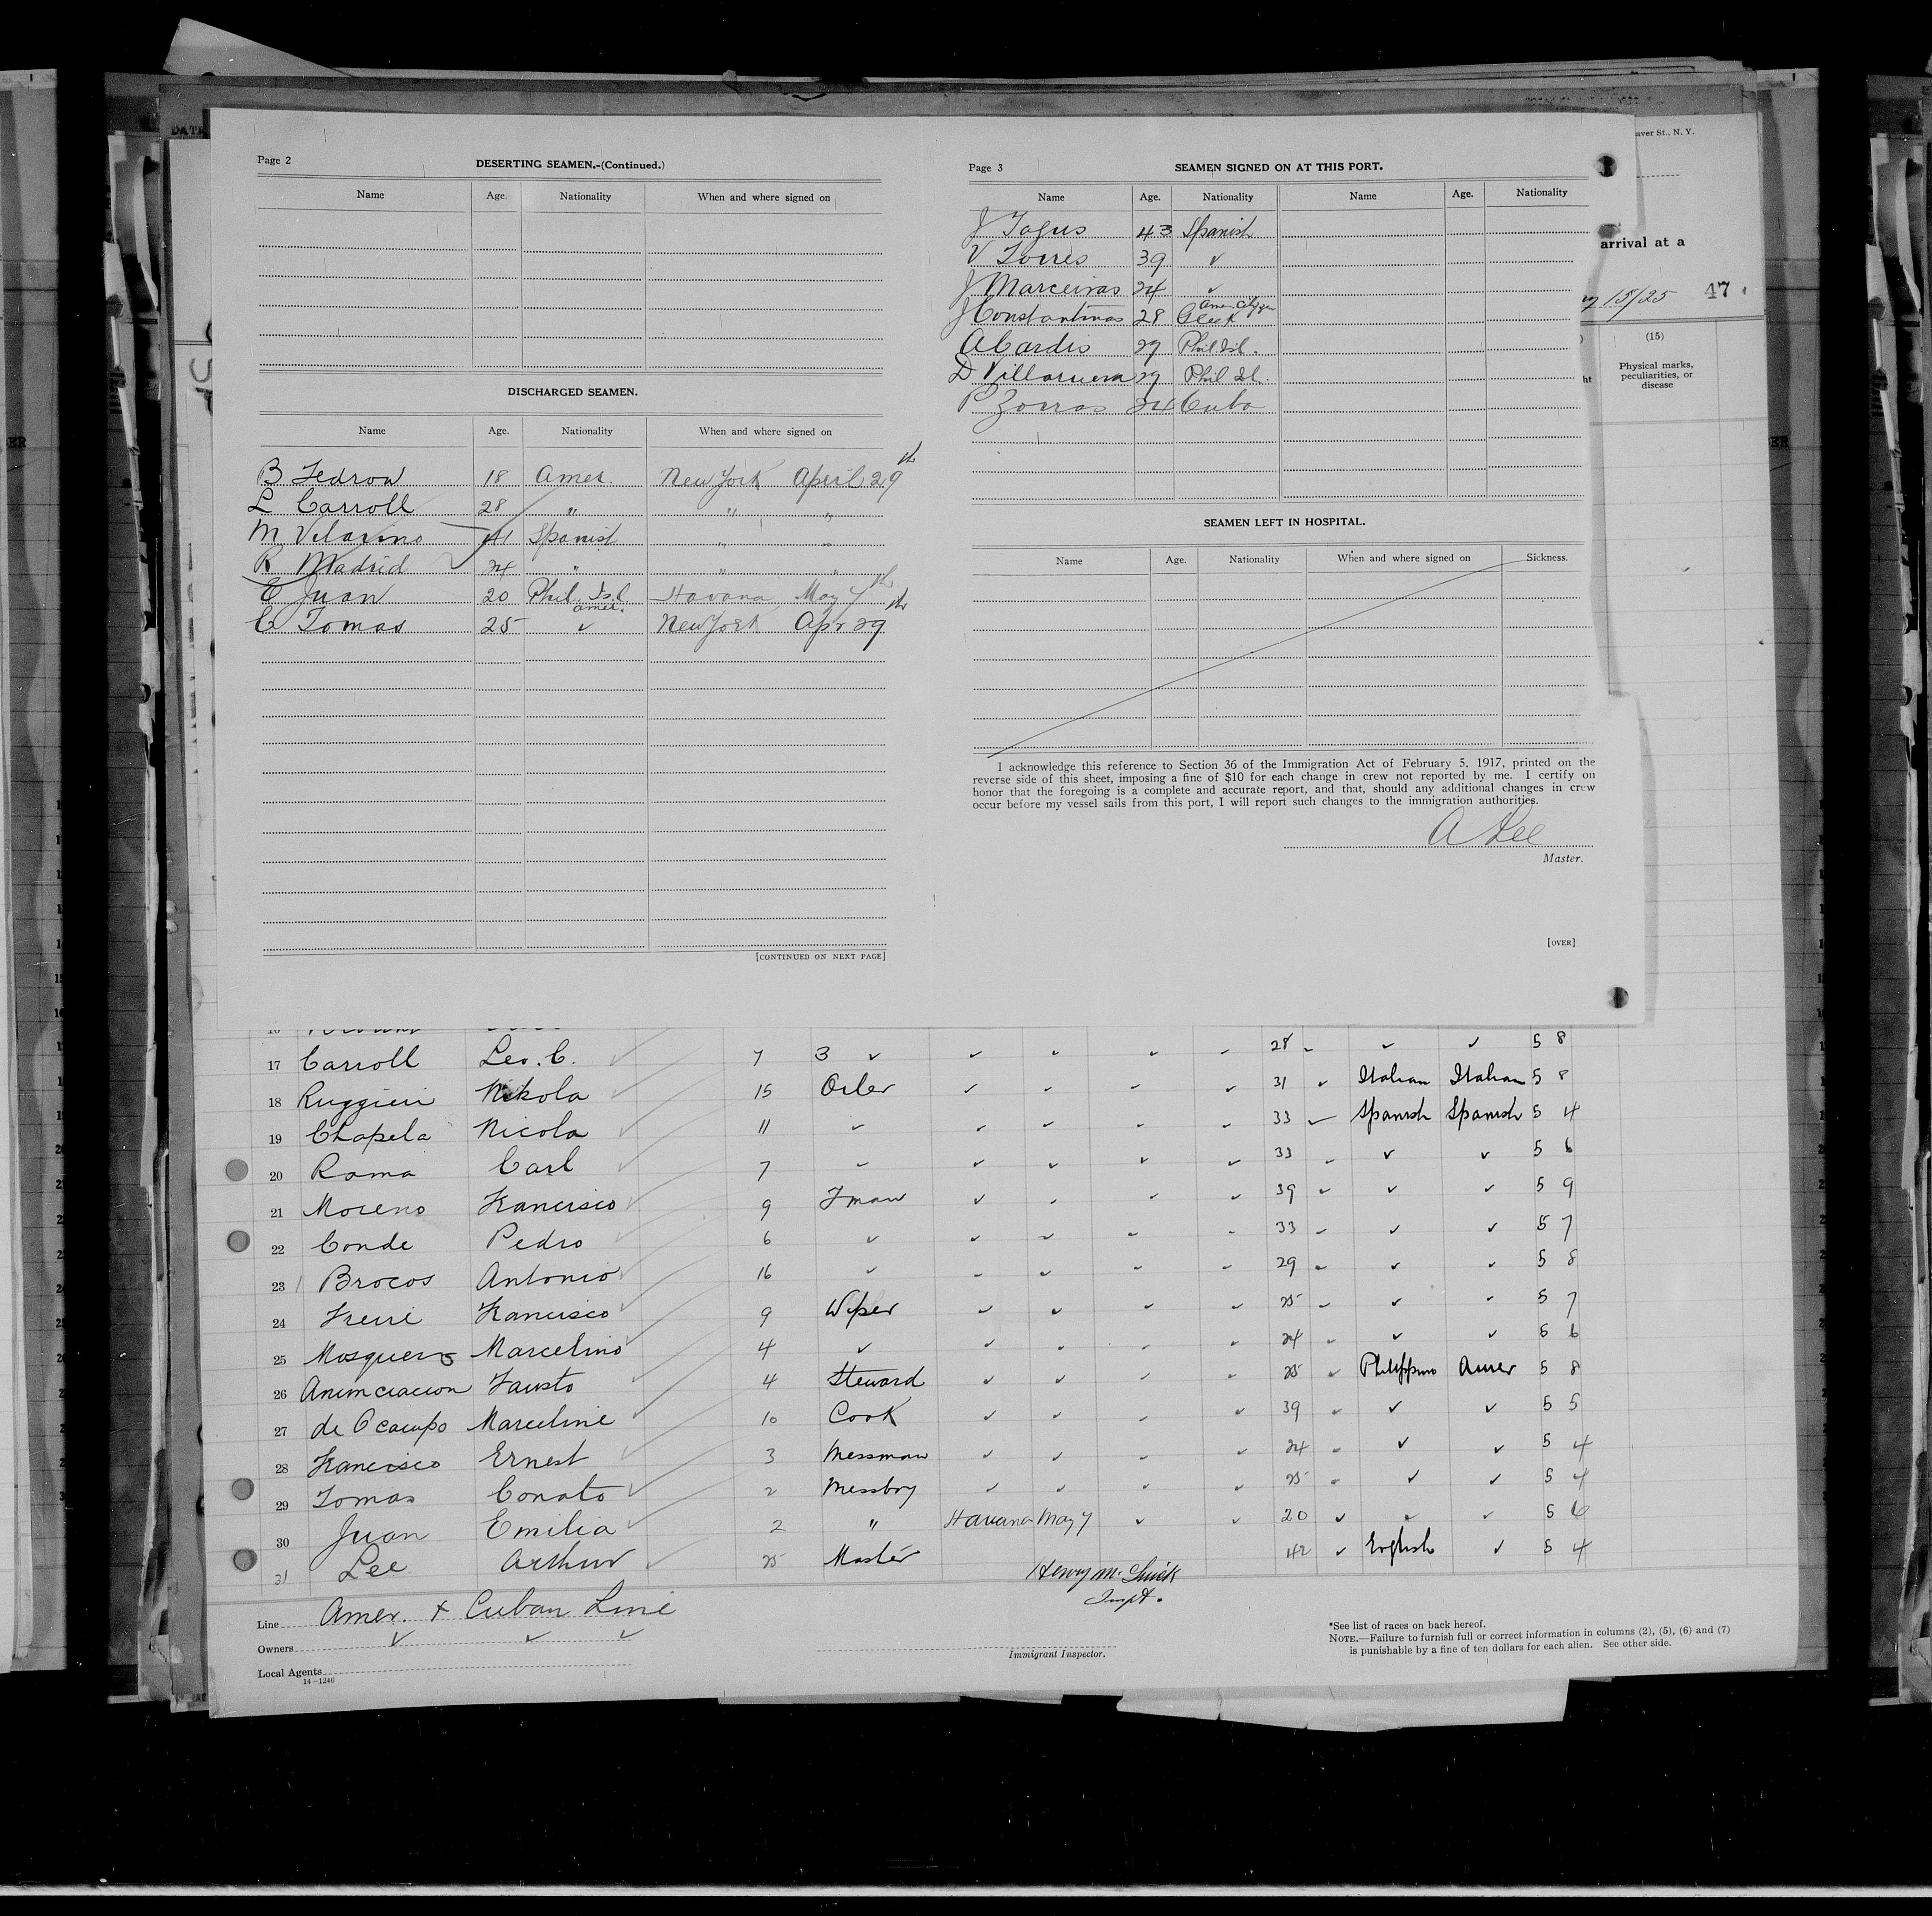 Page 2
DESERTING SEAMEN.-(Continued.)
Name Age. Nationality When and where signed on
DISCHARGED SEAMEN.
Name Age. Nationality When and where signed on
B Fedrow 18 Amer. New York April 29th
L Carroll 28 " " "
M Vilarino 41 Spanish " "
R Madrid 24 " " "
E Juan 20 Phil. Isl. Havana May 7th
amer.
C Tomas 25 ✓ New York Apr 29th
[CONTINUED ON NEXT PAGE]
Page 3
SEAMEN SIGNED ON AT THIS PORT.
Name Age. Nationality Name Age. Nationality
J Tojus 43 Spanish
V Torres 39 ✓
J Marceiras 24 ✓
Amer. Citizen
J Constantinos 28 Greek
A Cardis 29 Phil Isl.
D Villaruera 29 Phil Isl.
P Zorras 24 Cuba
SEAMEN LEFT IN HOSPITAL.
Name Age. Nationality When and where signed on Sickness.
I acknowledge this reference to Section 36 of the Immigration Act of February 5, 1917, printed on the
reverse side of this sheet, imposing a fine of $10 for each change in crew not reported by me. I certify on
honor that the foregoing is a complete and accurate report, and that, should any additional changes in crew
occur before my vessel sails from this port, I will report such changes to the immigration authorities.
A Lee
Master.
[OVER]
aver St., N. Y.
arrival at a
15/25 47
(15)
Physical marks,
peculiarities, or
disease
17 Carroll Leo. C. 7 3 ✓ ✓ ✓ ✓ ✓ 28 ✓ ✓ ✓ 5 8
18 Ruggieri Nikola 15 Oiler ✓ ✓ ✓ ✓ 31 ✓ Italian Italian 5 8
19 Chapela Nicola 11 ✓ ✓ ✓ ✓ ✓ 33 ✓ Spanish Spanish 5 4
20 Roma Carl 7 ✓ ✓ ✓ ✓ ✓ 33 ✓ ✓ ✓ 5 6
21 Moreno Francisco 9 Fman ✓ ✓ ✓ ✓ 39 ✓ ✓ ✓ 5 9
22 Conde Pedro 6 ✓ ✓ ✓ ✓ ✓ 33 ✓ ✓ ✓ 5 7
23 Brocos Antonio 16 ✓ ✓ ✓ ✓ ✓ 29 ✓ ✓ ✓ 5 8
24 Freire Francisco 9 Wiper ✓ ✓ ✓ ✓ 25 ✓ ✓ ✓ 5 7
25 Mosquera Marcelino 4 ✓ ✓ ✓ ✓ ✓ 24 ✓ ✓ ✓ 5 6
26 Anunciacion Fausto 4 Steward ✓ ✓ ✓ ✓ 25 ✓ Philippino Amer 5 8
27 de Ocampo Marceline 10 Cook ✓ ✓ ✓ ✓ 39 ✓ ✓ ✓ 5 5
28 Francisco Ernest 3 Messman ✓ ✓ ✓ ✓ 24 ✓ ✓ ✓ 5 4
29 Tomas Conato 2 Messboy ✓ ✓ ✓ ✓ 25 ✓ ✓ ✓ 5 4
30 Juan Emilia 2 " Havana May 7 ✓ ✓ 20 ✓ ✓ ✓ 5 6
31 Lee Arthur 25 Master 42 ✓ English ✓ 5 4
Line Amer. + Cuban Line
Owners ✓ ✓ ✓
Local Agents
14-1240
Henry M.
Inspt.
Immigrant Inspector.
*See list of races on back hereof.
NOTE.—Failure to furnish full or correct information in columns (2), (5), (6) and (7)
is punishable by a fine of ten dollars for each alien. See other side.